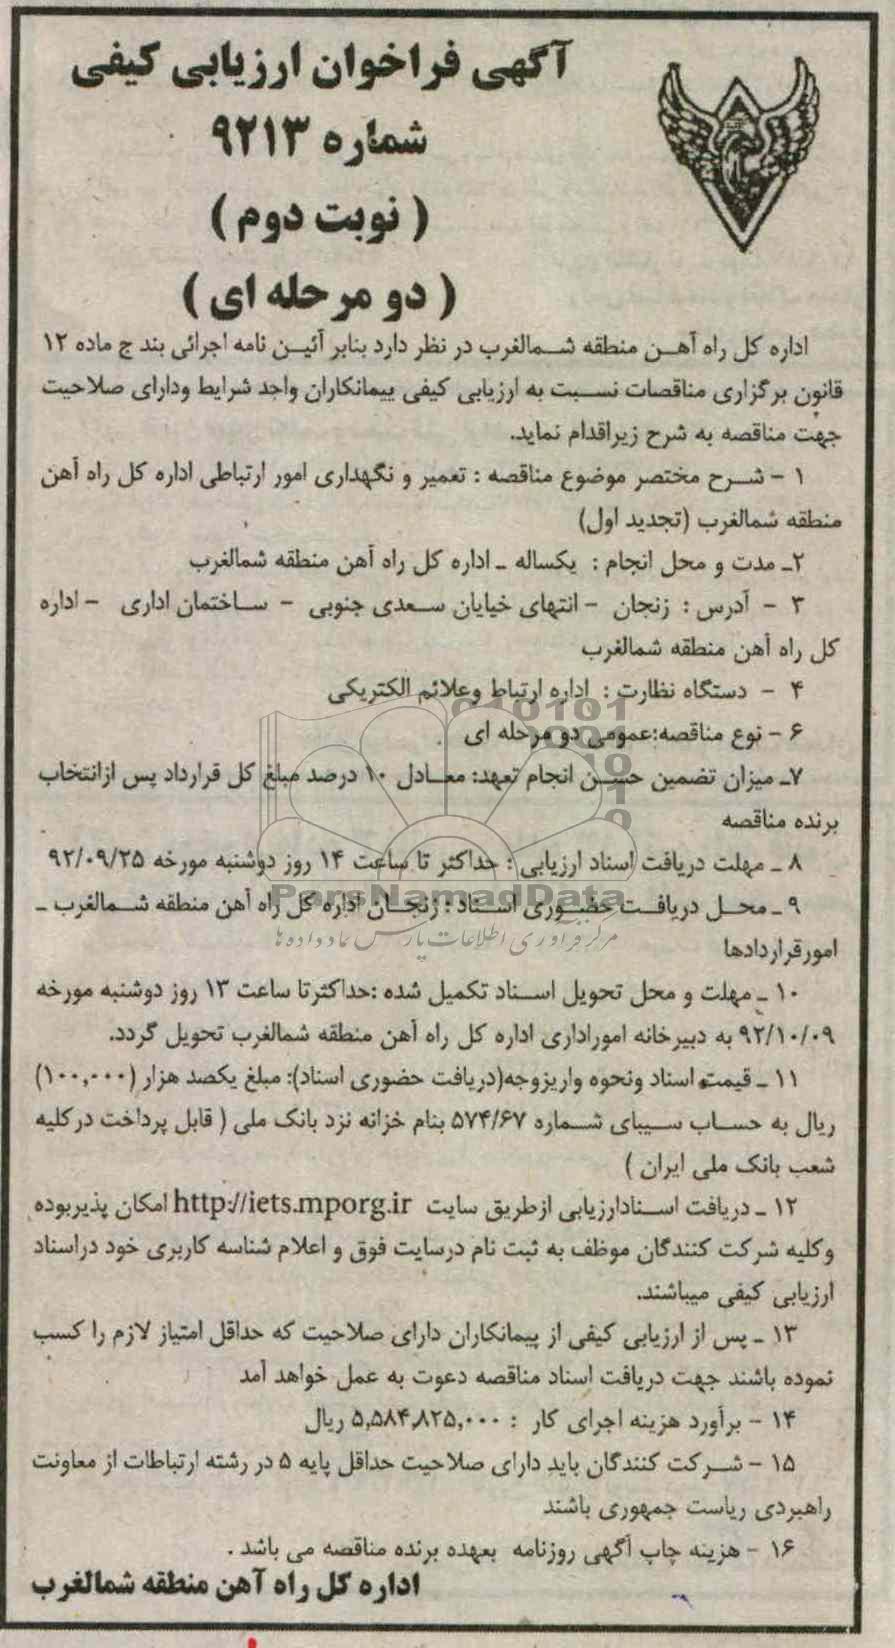 آگهی فراخوان ارزیابی کیفی
شماره ۹۲۱۳
( نوبت دوم )
( دو مرحله ای )
اداره کل راه آهن منطقه شمالغرب در نظر دارد بنابر آئین نامه اجرائی بند ج ماده ۱۲
قانون برگزاری مناقصات نسبت به ارزیابی کیفی پیمانکاران واجد شرایط ودارای صلاحیت
جهت مناقصه به شرح زیراقدام نماید.
۱ - شرح مختصر موضوع مناقصه : تعمیر و نگهداری امور ارتباطی اداره کل راه آهن
منطقه شمالغرب (تجدید اول)
۲ـ مدت و محل انجام : یکساله ـ اداره کل راه آهن منطقه شمالغرب
۳ - آدرس : زنجان - انتهای خیابان سعدی جنوبی - ساختمان اداری - اداره
کل راه آهن منطقه شمالغرب
۴ - دستگاه نظارت : اداره ارتباط وعلائم الکتریکی
۶ - نوع مناقصه:عمومی دو مرحله ای
۷ـ میزان تضمین حسن انجام تعهد: معادل ۱۰ درصد مبلغ کل قرارداد پس ازانتخاب
برنده مناقصه
۸ ـ مهلت دریافت اسناد ارزیابی : حداکثر تا ساعت ۱۴ روز دوشنبه مورخه ۹۲/۰۹/۲۵
ParsNamadData
۹ ـ محل دریافت حضوری اسناد : زنجان اداره کل راه آهن منطقه شمالغرب ـ
مرکز فرآوری اطلاعات پارس نماد داده ها
امورقراردادها
۱۰ ـ مهلت و محل تحویل اسناد تکمیل شده :حداکثرتا ساعت ۱۳ روز دوشنبه مورخه
۹۲/۱۰/۰۹ به دبیرخانه اموراداری اداره کل راه آهن منطقه شمالغرب تحویل گردد.
۱۱ ـ قیمت اسناد ونحوه واریزوجه(دریافت حضوری اسناد): مبلغ یکصد هزار (۱۰۰,۰۰۰)
ریال به حساب سیبای شماره ۵۷۴/۶۷ بنام خزانه نزد بانک ملی ( قابل پرداخت درکلیه
شعب بانک ملی ایران )
۱۲ ـ دریافت اسنادارزیابی ازطریق سایت http://iets.mporg.ir امکان پذیربوده
وکلیه شرکت کنندگان موظف به ثبت نام درسایت فوق و اعلام شناسه کاربری خود دراسناد
ارزیابی کیفی میباشند.
۱۳ ـ پس از ارزیابی کیفی از پیمانکاران دارای صلاحیت که حداقل امتیاز لازم را کسب
نموده باشند جهت دریافت اسناد مناقصه دعوت به عمل خواهد آمد
۱۴ - برآورد هزینه اجرای کار : ۵,۵۸۴,۸۲۵,۰۰۰ ریال
۱۵ - شرکت کنندگان باید دارای صلاحیت حداقل پایه ۵ در رشته ارتباطات از معاونت
راهبردی ریاست جمهوری باشند
۱۶ - هزینه چاپ آگهی روزنامه بعهده برنده مناقصه می باشد .
اداره کل راه آهن منطقه شمالغرب